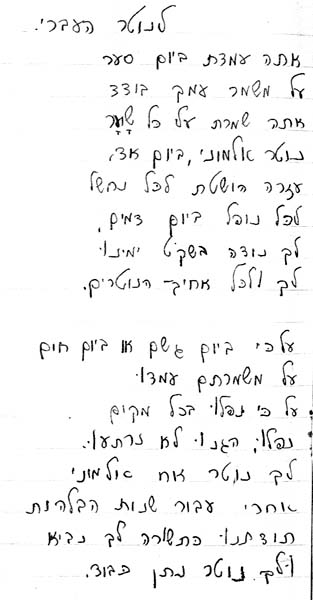 לנוטר העברי.
אתה עמדת ביום סער
על משמר עמך בודד
אתה שמרת על כל שַׁעַר
נוטר אלמוני, ביום אד,
עזרה הושטת לכל נחשל
לכל נופל ביום דמים,
לך נודה בשקט ימינו
לך ולכל אחיך הנוטרים.
על כי ביום גשם או ביום חום
על משמרתם עמדו
על כי נפלו בכל מקום
נפלו, הגנו לא נרתעו.
לך נוטר אח אלמוני
אחרי עבור שנות הבלהות
תודתנו כתשורה לך נביא
ולך נוטר נתן כבוד.